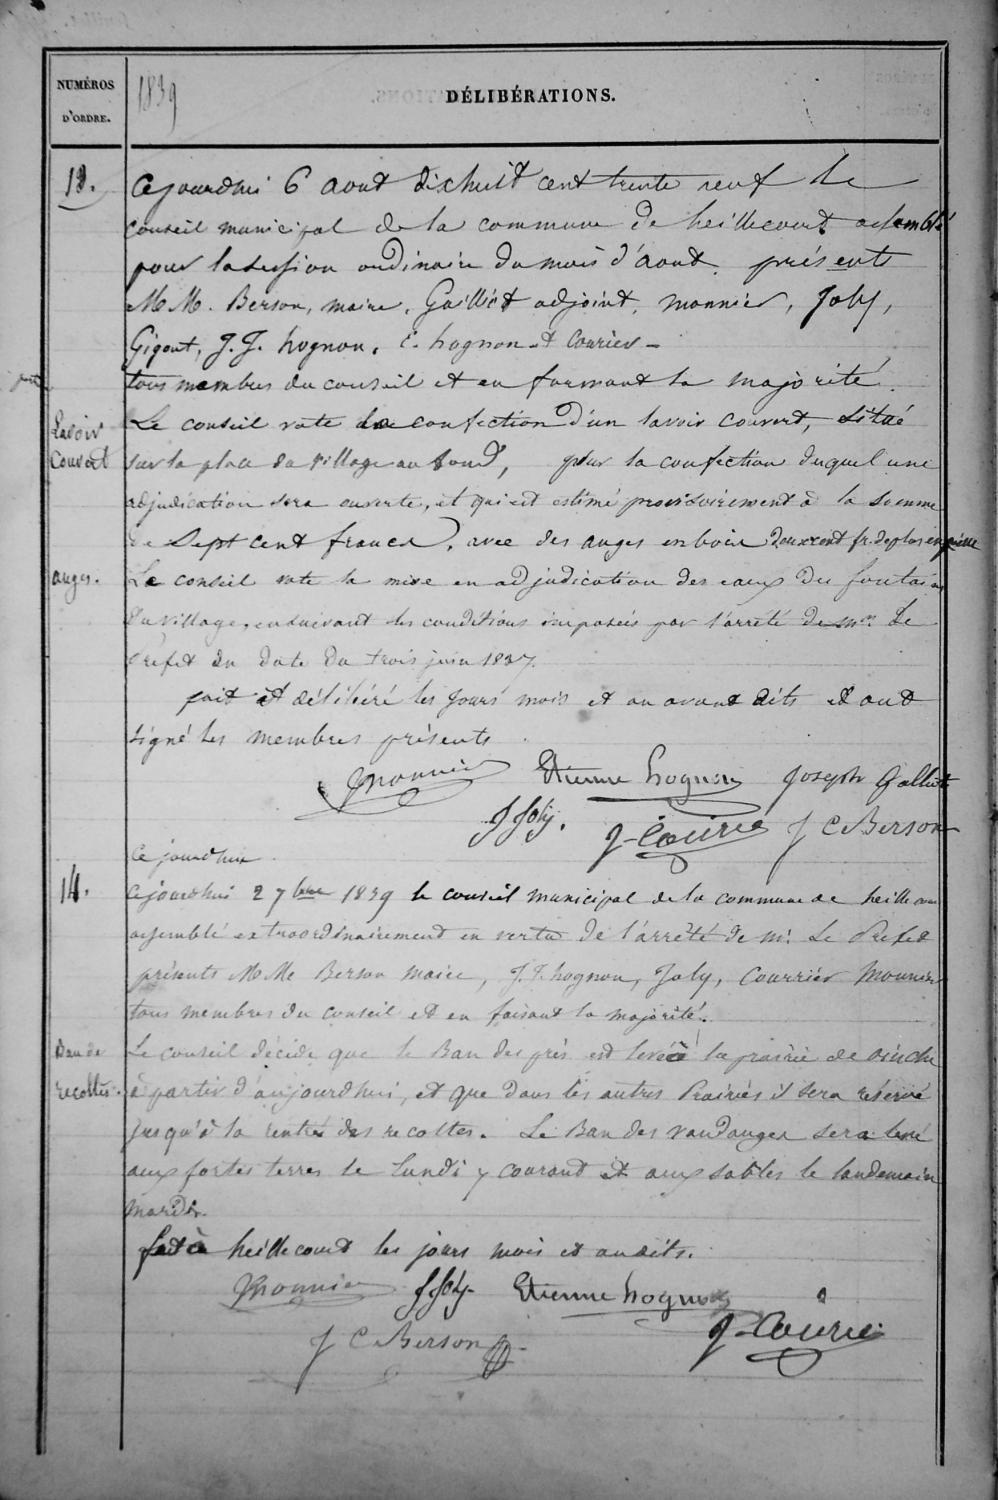 NUMÉROS
D'ORDRE.
1839
DÉLIBÉRATIONS.
13.
Cejourdhui 6 aout dixhuit cent trente neuf le
conseil municipal de la commune de heillecourt assemblé
pour la session ordinaire du mois d'aout. présents
M M. Berson, maire, Gaillot adjoint, monnier, Joly,
Gigout, J. J. hognon, E. hognon et Courier
tous membres du conseil et en formant la majorité.
Lavoir
Couvert
Le conseil vote la confection d'un lavoir couvert, situé
sur la place du village au fond, pour la confection duquel une
adjudication sera ouverte, et qui est estimé provisoirement à la somme
de Sept cent francs, avec des auges en bois deux cent fr. de plus en pierre
auges.
Le conseil vote la mise en adjudication des eaux des fontaines
du village, en suivant les conditions imposées par l'arrêté de mr. Le
Préfet en date du trois juin 1837.
fait et délibéré les jours mois et an avant dits et ont
signé les membres présents.
Monnier Etienne hognon Joseph Galliot
J Joly. J-Courié J C Berson
Ce jourdhui
14.
Cejourdhui 2 7bre 1839 le conseil municipal de la commune de heillecourt
assemblé extraordinairement en vertu de l'arrêté de mr. Le Préfet
présents M Me Berson maire, J. J. hognon, Joly, Courriér Mounier
tous membres du conseil et en faisant la majorité.
Ban de
recoltes.
Le conseil décide que le Ban des prés est levé à la prairie de
à partir d'aujourdhui, et que dans les autres Prairies il sera réservé
jusqu'à la rentrée des recoltes. Le Ban des vandanges sera levé
aux fortes terres le lundi 7 courant et aux sables le landemain
mardi.
fait à heillecourt les jours mois et an dits.
Monnier J Joly Etienne hognon
J C Berson J-Courié